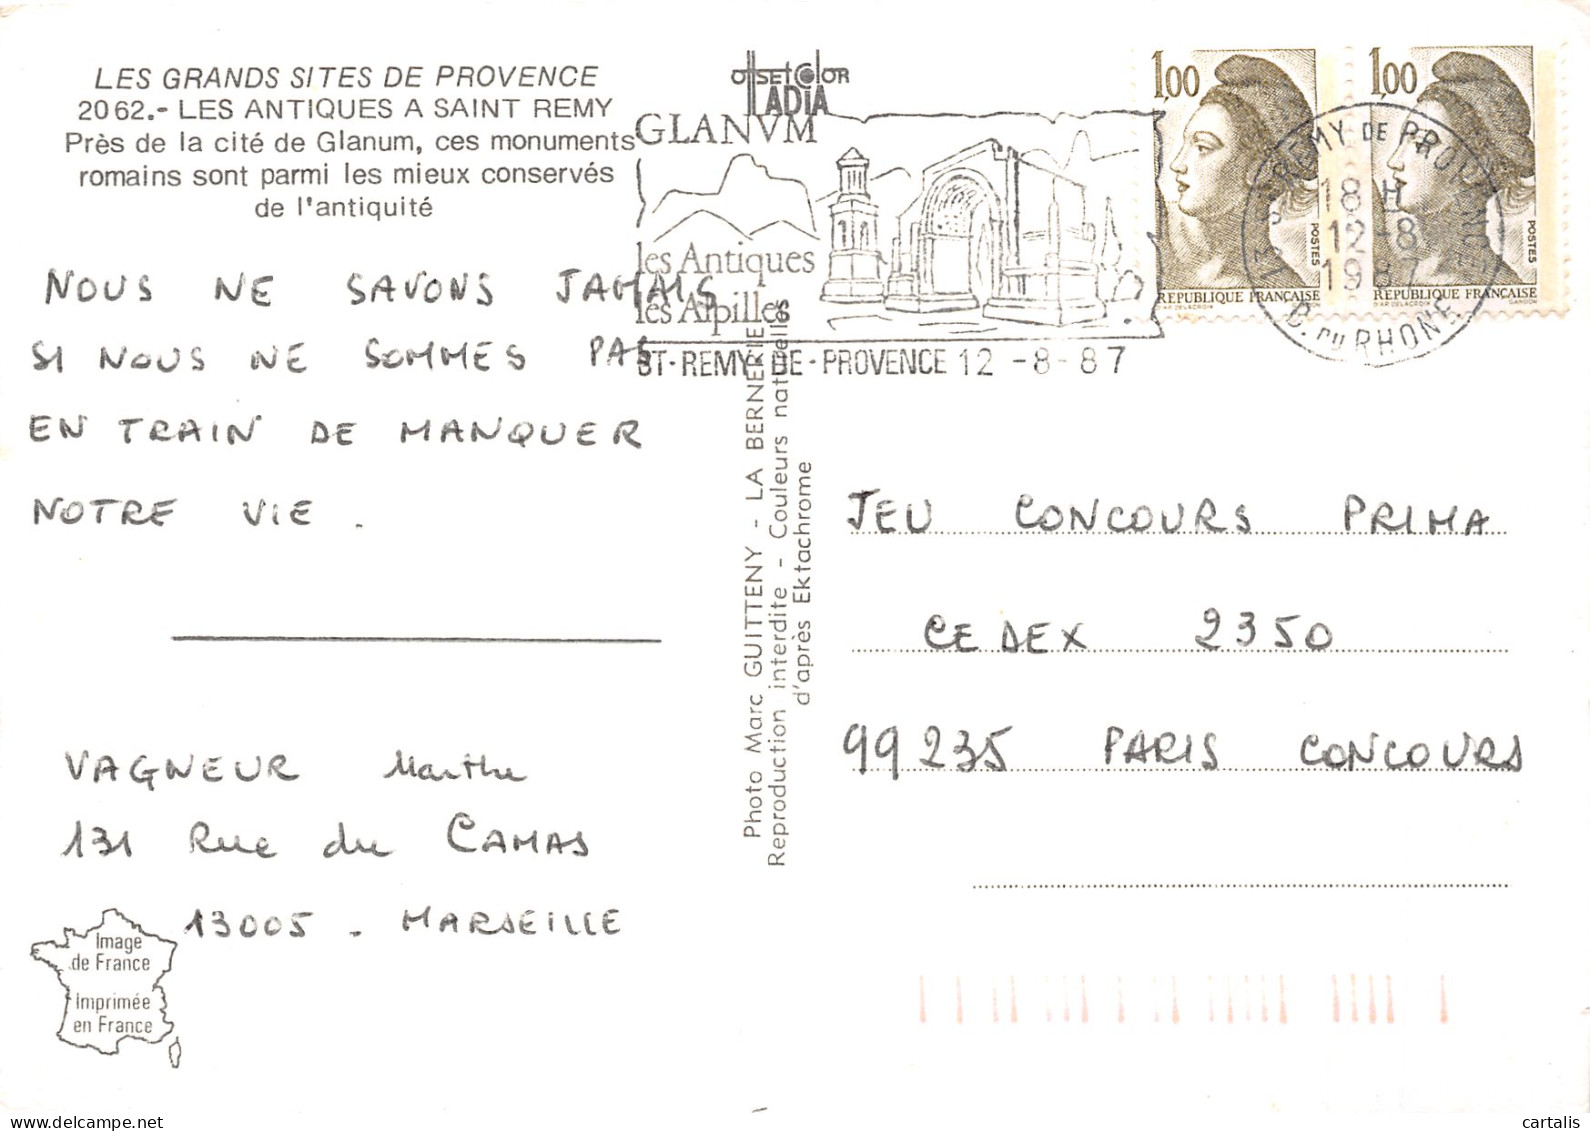 LES GRANDS SITES DE PROVENCE
2062.- LES ANTIQUES A SAINT REMY
Près de la cité de Glanum, ces monuments
romains sont parmi les mieux conservés
de l'antiquité
NOUS NE SAVONS JAMAIS
SI NOUS NE SOMMES PAS
EN TRAIN DE MANQUER
NOTRE VIE .
VAGNEUR Marthe
131 Rue du CAMAS
13005 . MARSEILLE
Image
de France
Imprimée
en France
OffSEt COlOR
IADIA
GLANVM
les Antiques
les Alpilles
ST-REMY-DE-PROVENCE 12 -8- 87
Photo Marc GUITTENY - LA BERNERIE
Reproduction interdite - Couleurs naturelles
d'après Ektachrome
1,00
POSTES
REPUBLIQUE FRANÇAISE
D'AP. DELACROIX GANDON
1,00
POSTES
REPUBLIQUE FRANÇAISE
D'AP. DELACROIX GANDON
REMY DE PROVENCE
18 H
12-8
1987
B. DU RHONE
JEU CONCOURS PRIMA
CEDEX 2350
99235 PARIS CONCOURS
cartalis.com